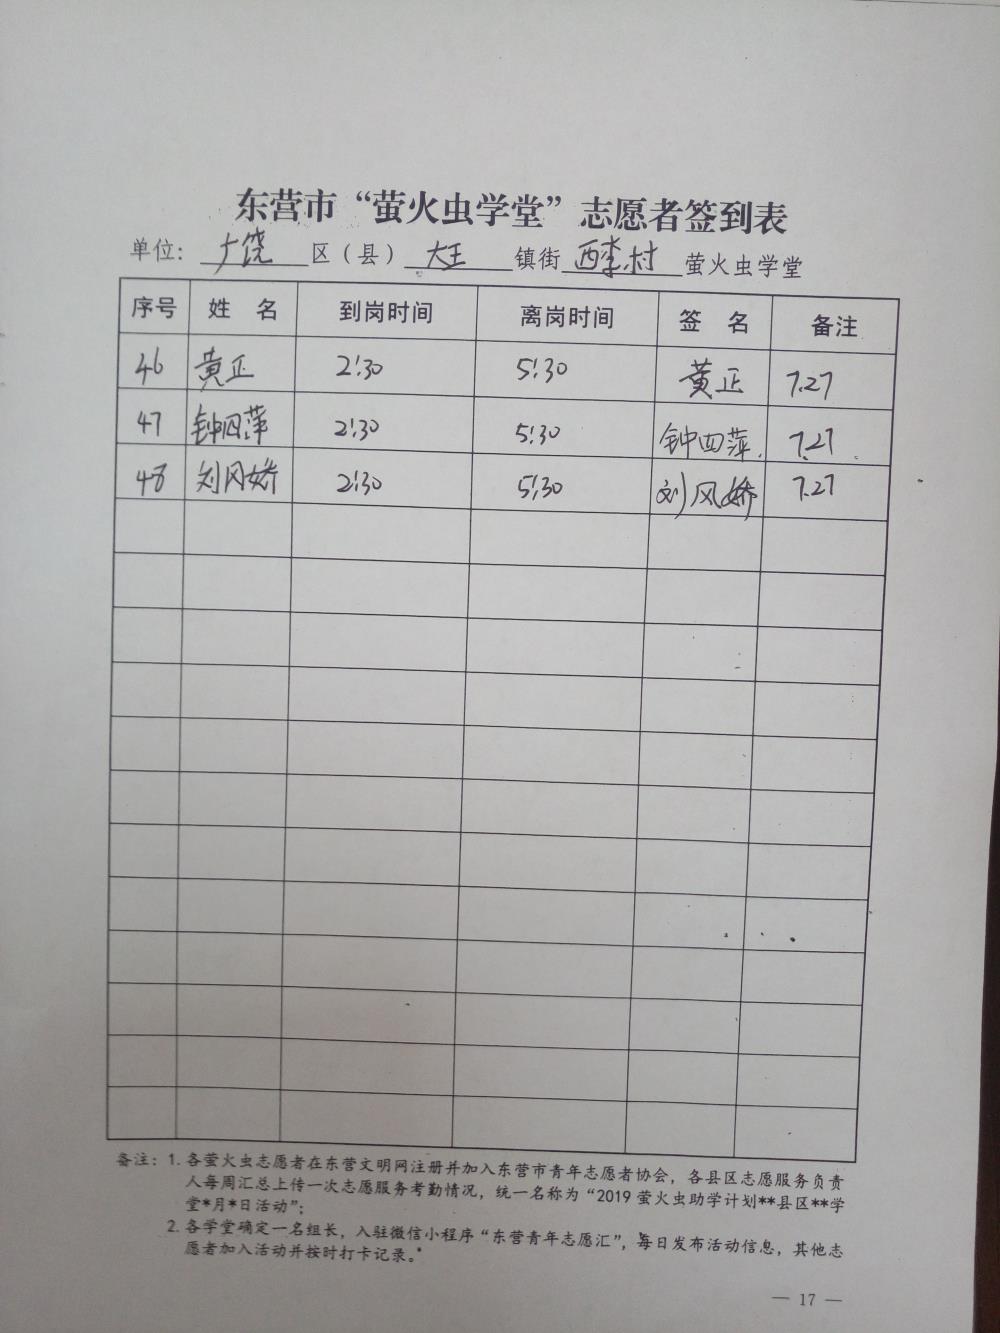 东营市“萤火虫学堂”志愿者签到表
单位：广饶区（县）大王镇街西李村萤火虫学堂
序号 姓 名 到岗时间 离岗时间 签 名 备注
46 黄正 2:30 5:30 黄正 7.27
47 钟四萍 2:30 5:30 钟四萍 7.27
48 刘风娇 2:30 5:30 刘风娇 7.27
备注：1. 各萤火虫志愿者在东营文明网注册并加入东营市青年志愿者协会，各县区志愿服务负责
人每周汇总上传一次志愿服务考勤情况，统一名称为“2019 萤火虫助学计划**县区**学
堂*月*日活动”；
2. 各学堂确定一名组长，入驻微信小程序“东营青年志愿汇”，每日发布活动信息，其他志
愿者加入活动并按时打卡记录。
— 17 —